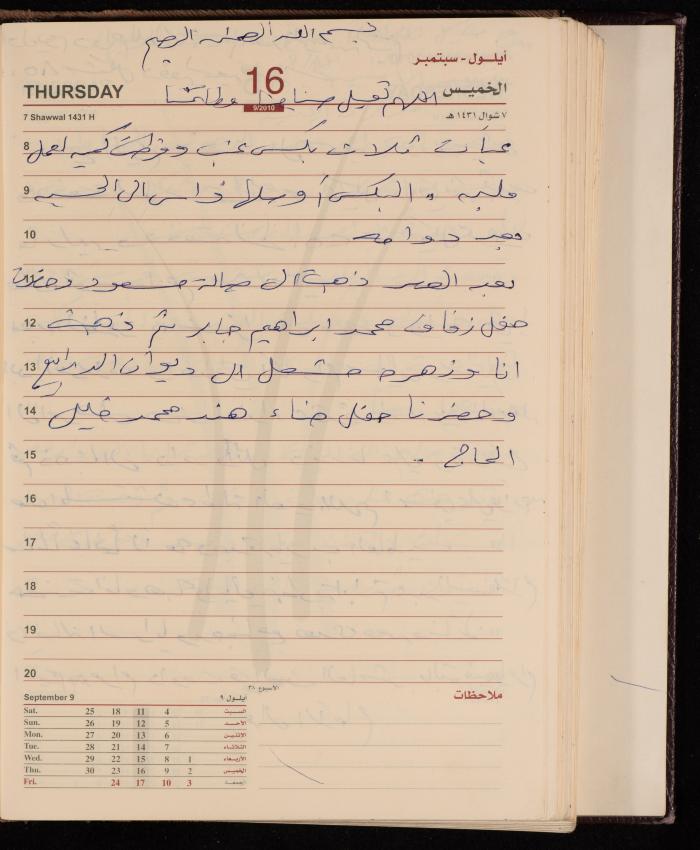 بسم الله الرحمن الرحيم
أيلـول - سبتمبر
THURSDAY 16 الخميس
9/2010
اللهم تقبل صيامنا وطاعتنا
7 Shawwal 1431 H ٧ شوال ١٤٣١ هـ
8 عبأت ثلاث بكس عنب وفرطت كميه لعمل
9 ملبه . البكس أوصلها فراس الى الحسبه
10 بعد دوامه
11 بعد العصر ذهبت الى صالة مسعود وحضرت
12 حفل زفاف محمد ابراهيم جابر ثم ذهبت
13 انا وزهره ومشعل الى ديوان الدرابيع
14 وحضرنا حفل حناء هند محمد خليل
15 الحاج .
16
17
18
19
20
September 9 أيلـول ٩
الأسبوع ٣٨
ملاحظات
Sat. 25 18 11 4 السبت
Sun. 26 19 12 5 الأحد
Mon. 27 20 13 6 الاثنين
Tue. 28 21 14 7 الثلاثاء
Wed. 29 22 15 8 1 الأربعاء
Thu. 30 23 16 9 2 الخميس
Fri. 24 17 10 3 الجمعة